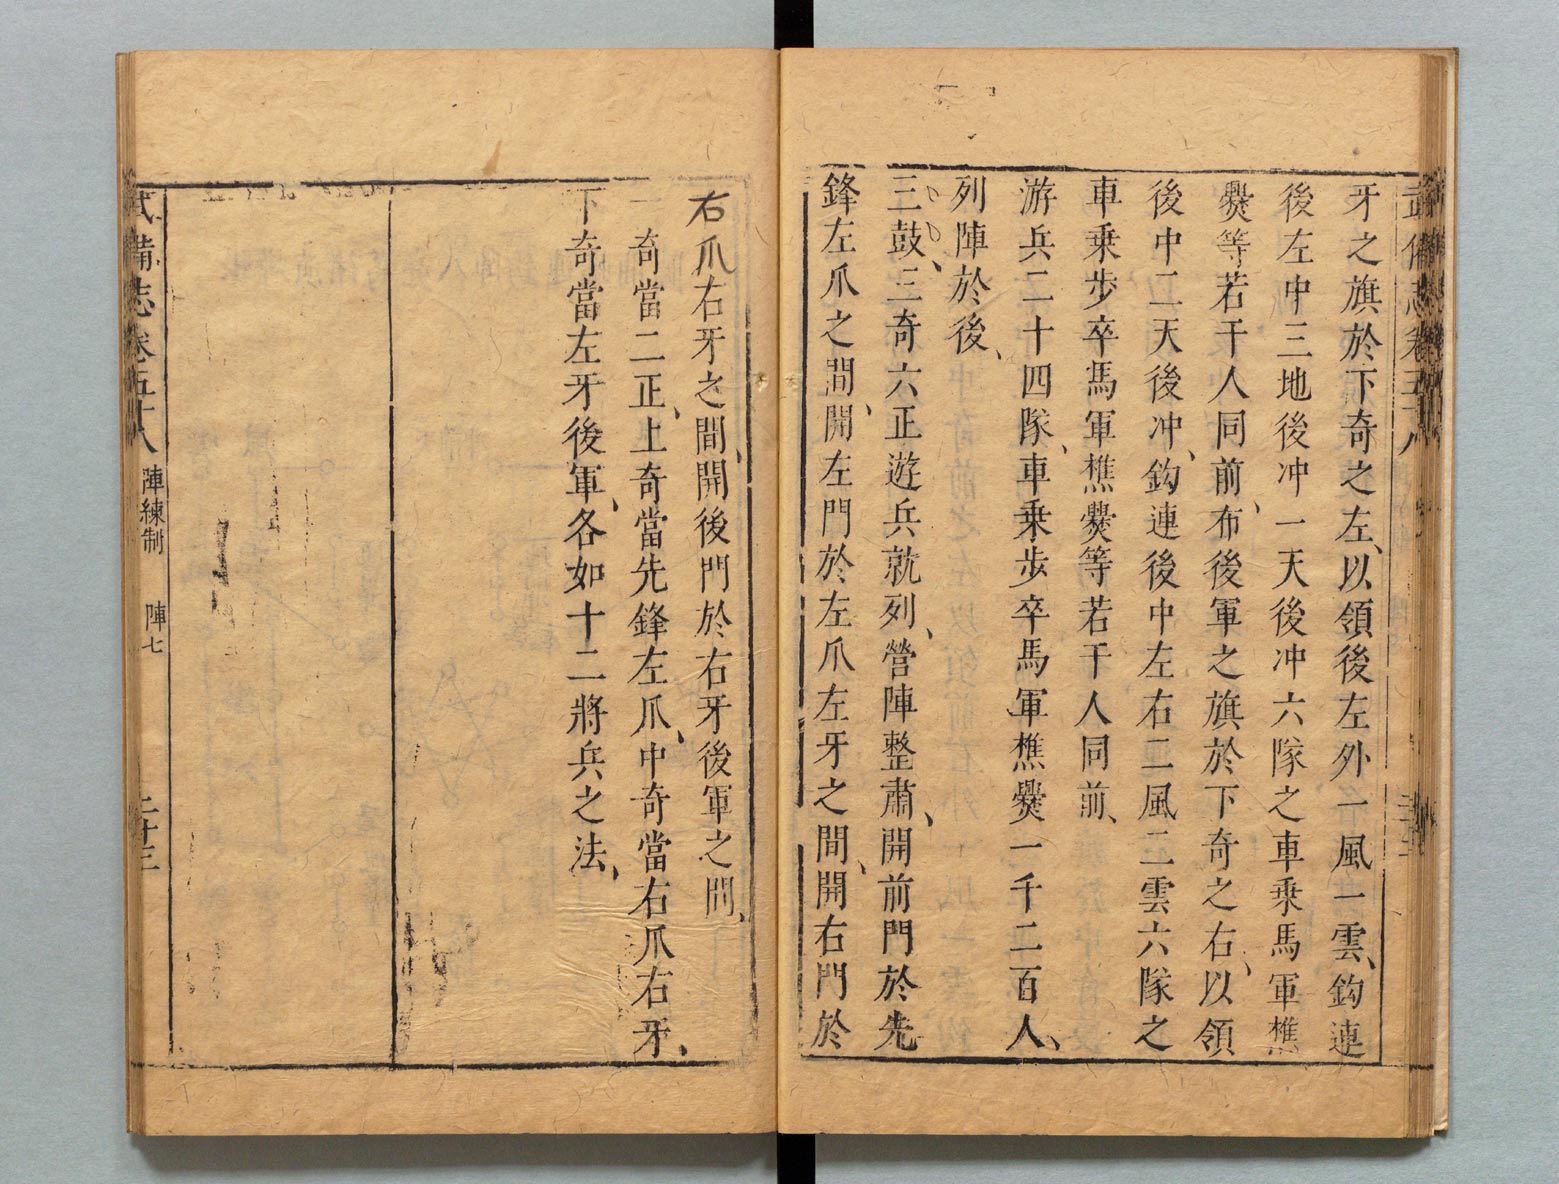 牙之旗於下奇之左、以領後左外一風一雲、鈎連
後左中三地後冲一天後冲六隊之車乗馬軍樵
爨等若干人同前、布後軍之旗於下奇之右、以領
後中二天後冲、鈎連後中左右二風二雲六隊之
車乗步卒馬軍樵爨等若干人同前、
游兵二十四隊、車乗步卒馬軍樵爨一千二百人、
列陣於後、
三鼓、三奇六正遊兵就列、營陣整肅、開前門於先
鋒左爪之間、開左門於左爪左牙之間、開右門於
右爪右牙之間、開後門於右牙後軍之間、
一奇當二正、上奇當先鋒左爪、中奇當右爪右牙、
下奇當左牙後軍、各如十二將兵之法、
武備志卷五十八 陣練制 陣七 二十三